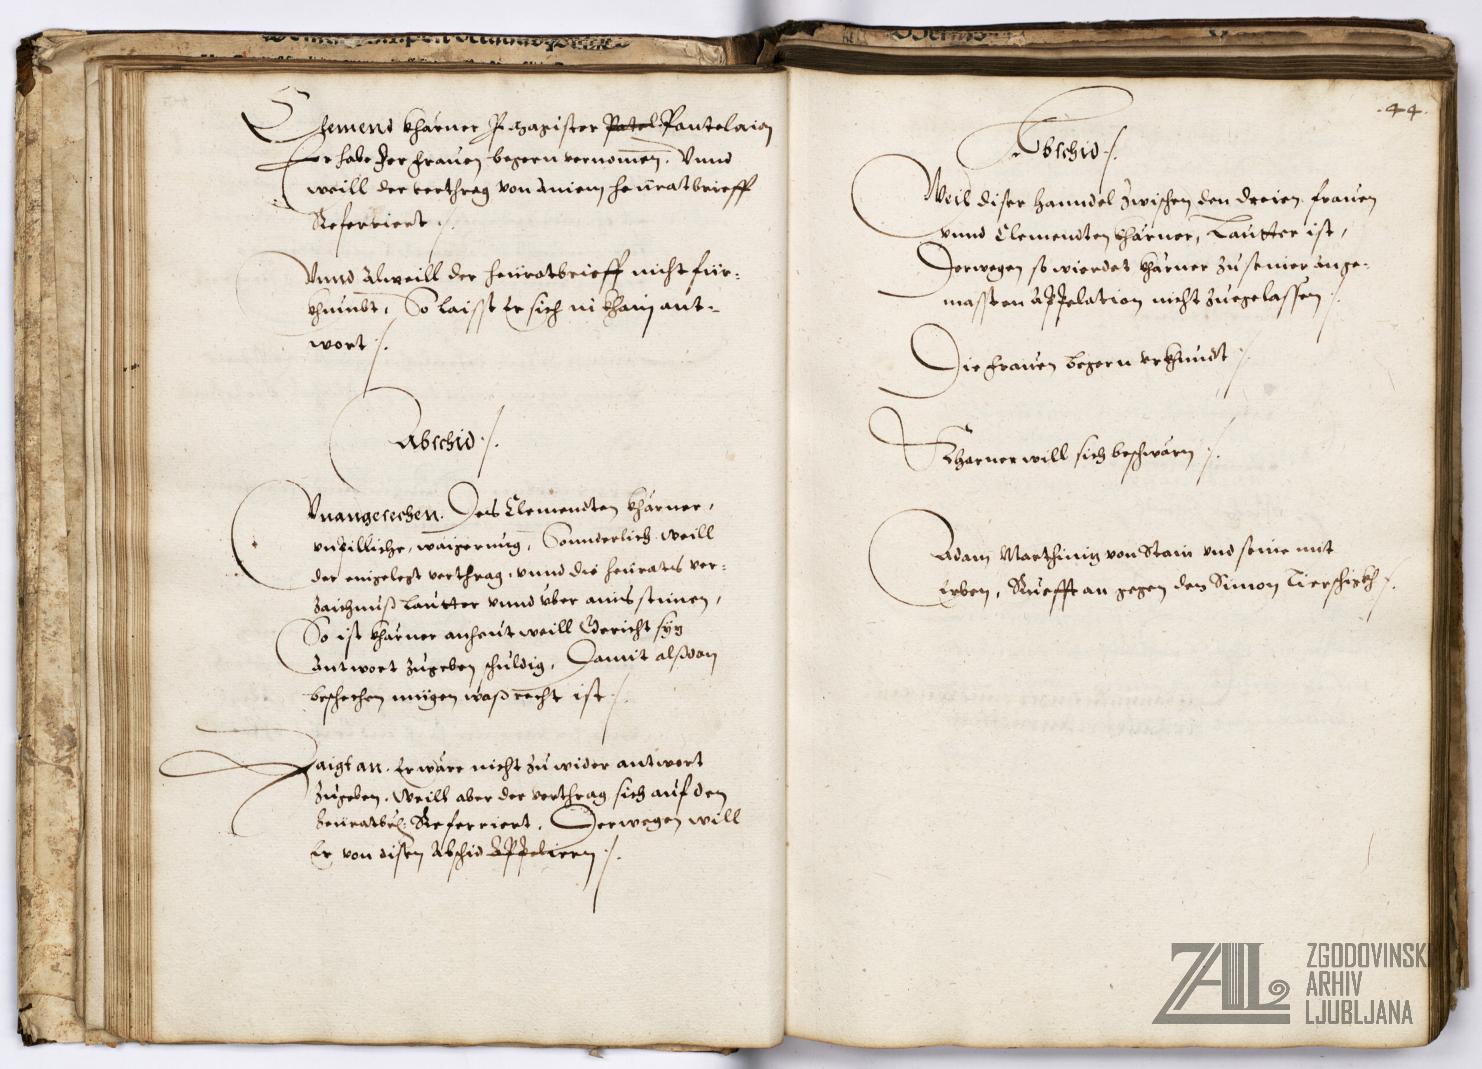 Clemend Khärner P. Magister Patel Pantelaion
Er habe Jer frauen begern vernomen. Vnnd
weill der verthrag von ainem heüratbrieff
Referriert ./.
Vnnd Alweill der heüratbrieff nicht für-
khumbt, So laisst Er sich in khain ant-
wort ./.
Abschid ./.
Vnangesechen. Des Clemendten Khärner,
vnpilliche, waigerung, Sonnderlich weill
der eingelegt verthrag, vnnd die heürats ver-
zaichnuß Lautter vnnd vber ains stimen,
So ist Khärner anheut weill Gericht sÿn
Antwort zugeben schuldig, Damit alßdan
beschechen mügen waß recht ist ./.
Zaigt an. Er wäre nicht zu wider antwort
zugeben. Weill aber der verthrag sich auf den
heüratbr: Referriert. Derwegen will
Er von disem Abschid Appeliern ./.
44.
Abschid ./.
Weil diser hanndel zwischen den dreien frauen
vnnd Clemendten Khärner, Lautter ist,
Derwegen so wierdet Khärner zu seiner ange-
massten Appelation nicht zuegelassen ./.
Die frauen begern vrkhundt ./.
Kharner will sich beschwärn ./.
Adam Marthinig von Stain vnd seine mit
Erben, Ruefft an gegen den Simon
ZGODOVINSKI
ARHIV
LJUBLJANA